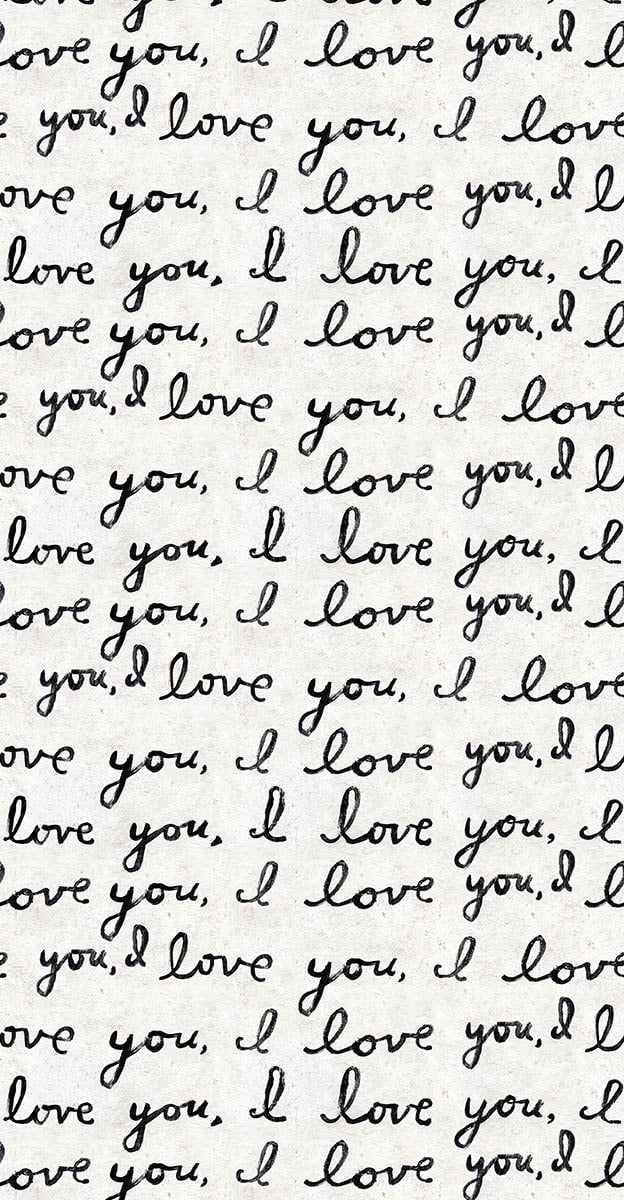 love you, I love you, I l
e you, I love you, I love
ove you, I love you, I l
love you, I love you, I
love you, I love you, I l
e you, I love you, I love
ove you, I love you, I l
love you, I love you, I
love you, I love you, I l
e you, I love you, I love
ove you, I love you, I l
love you, I love you, I
love you, I love you, I l
e you, I love you, I love
ove you, I love you, I l
love you, I love you, I
love you, I love you, I l